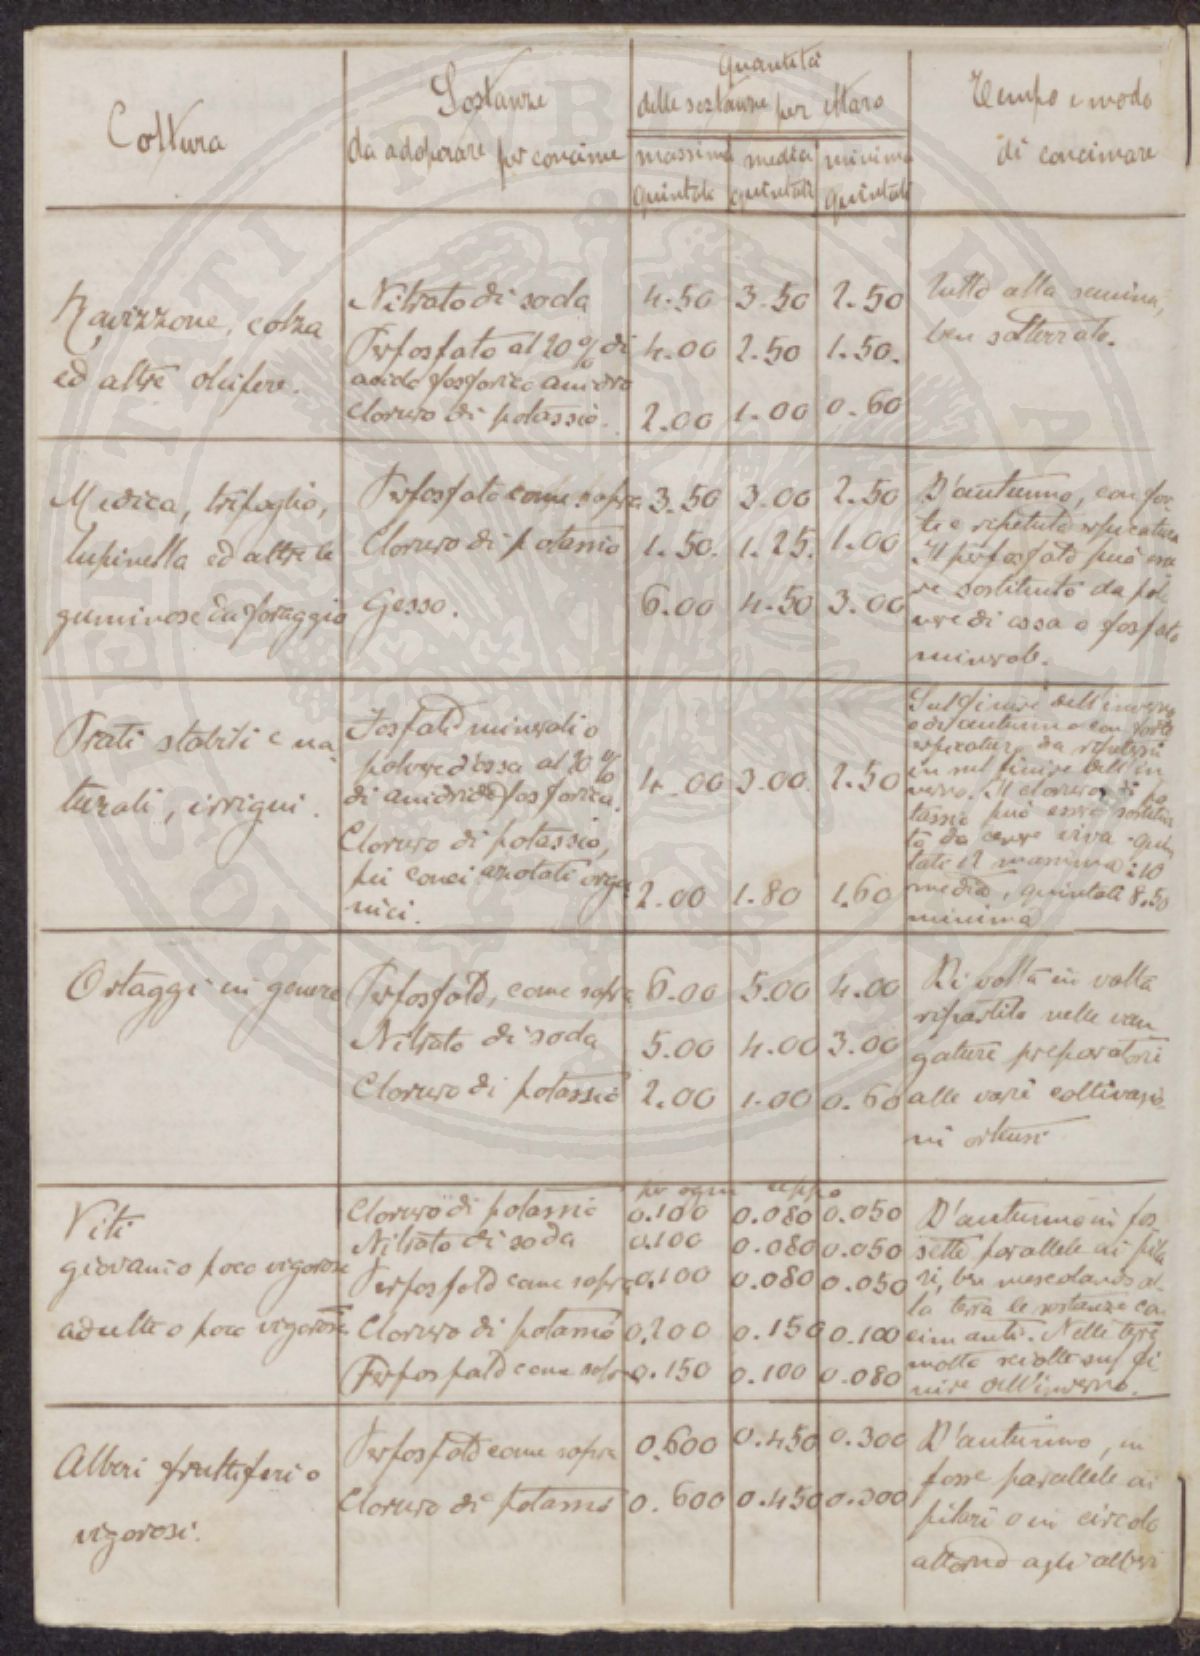 Coltura
Sostanze
da adoperare per concime
Quantità
delle sostanze per ettaro
massima quintali
media quintali
minima quintali
Tempo e modo
di concimare
Ravizzone, colza
ed altre oleifere.
Nitrato di soda 4.50 3.50 2.50
Perfosfato al 20 % di 4.00 2.50 1.50.
acido fosforico anidro
Cloruro di potassio. 2.00 1.00 0.60
Tutto alla semina,
ben sotterrato.
Medica, trifoglio,
lupinella ed altre le
guminose da foraggio
Perfosfato come sopra 3.50 3.00 2.50
Cloruro di potassio 1.50. 1.25. 1.00
Gesso. 6.00 4.50 3.00
D'autunno, con for
te e ripetuta erpicatura
Il perfosfato può esse
re sostituito da pol
vere di ossa o fosfato
minerale.
Prati stabili e na
turali, irrigui.
Fosfato minerali o
polvere d'ossa al 20 %
di anidride fosforica. 4.00 3.00 2.50
Cloruro di potassio,
più conci azotati orga
nici. 2.00 1.80 1.60
Sul finire dell'inverno
o d'autunno con forte
erpicatura da ripetersi
in sul finire dell'in
verno. Il cloruro di po
tassio può essere sostitui
to da cenere viva - quin
tali 12 massima: 10
media, quintali 8.50
minima
Ortaggi in genere
Perfosfato, come sopra 6.00 5.00 4.00
Nitrato di soda 5.00 4.00 3.00
Cloruro di potassio 2.00 1.00 0.60
Di volta in volta
ripartito nelle van
gature preparatorie
alle varie coltivazio
ni ortensi
Viti
giovani o poco vigorose
adulte o poco vigorose
per ogni ceppo
Cloruro di potassio 0.100 0.080 0.050
Nitrato di soda 0.100 0.080 0.050
Perfosfato come sopra 0.100 0.080 0.050
Cloruro di potassio 0.200 0.150 0.100
Perfosfato come sopra 0.150 0.100 0.080
D'autunno in fos
sette parallele ai fila
ri, ben mescolando al
la terra le sostanze con
cimanti. Nelle terre
molto sciolte sul fi
nire dell'inverno.
Alberi fruttiferi o
vigorosi.
Perfosfato come sopra 0.600 0.450 0.300
Cloruro di potassio 0.600 0.450 0.300
D'autunno, in
fosse parallele ai
filari o in circolo
attorno agli alberi